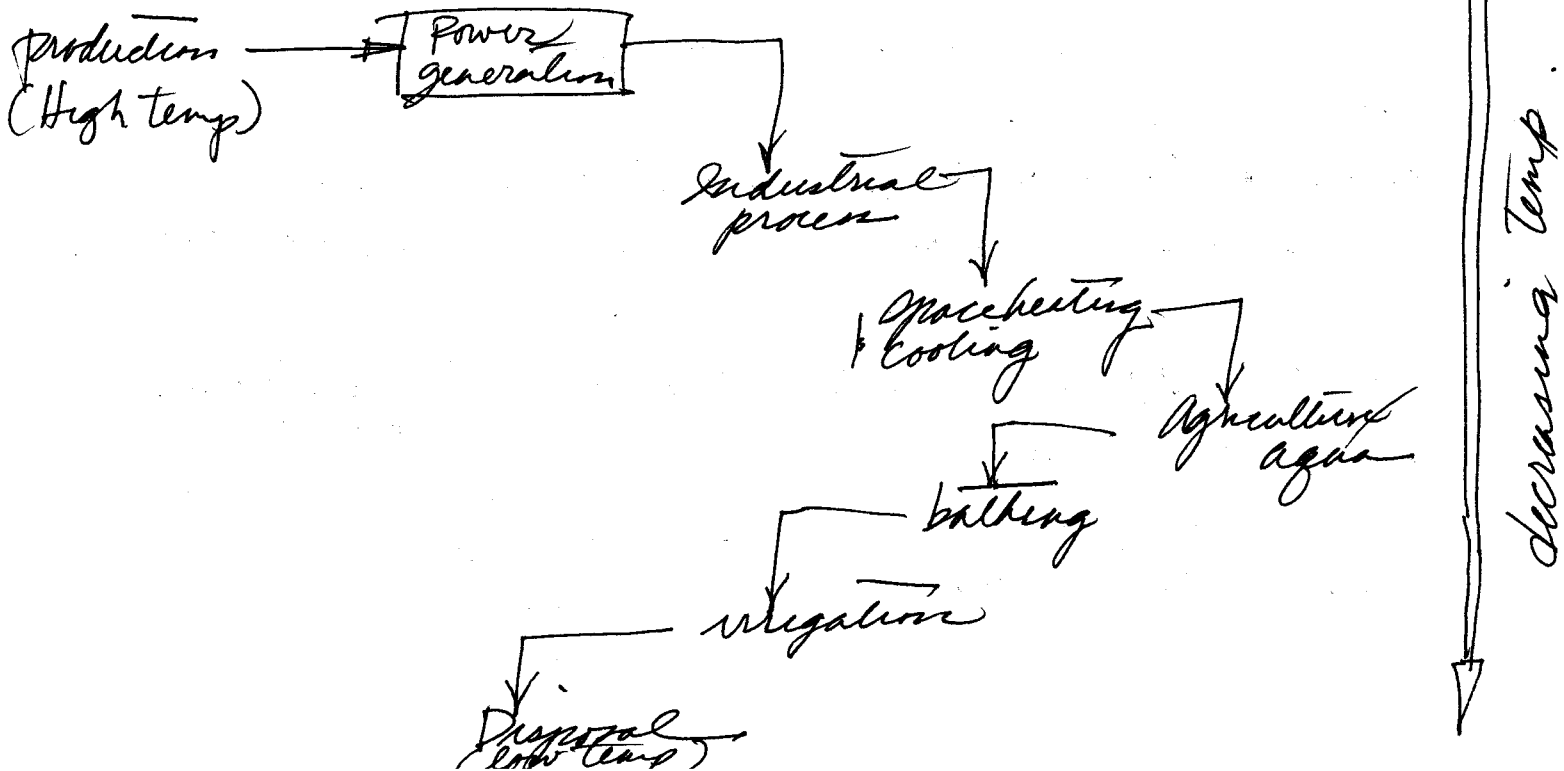 production
(High temp)
Power
generation
Industrial
process
space heating
& cooling
Agriculture
aqua
bathing
irrigation
Disposal
(low temp)
decreasing Temp.